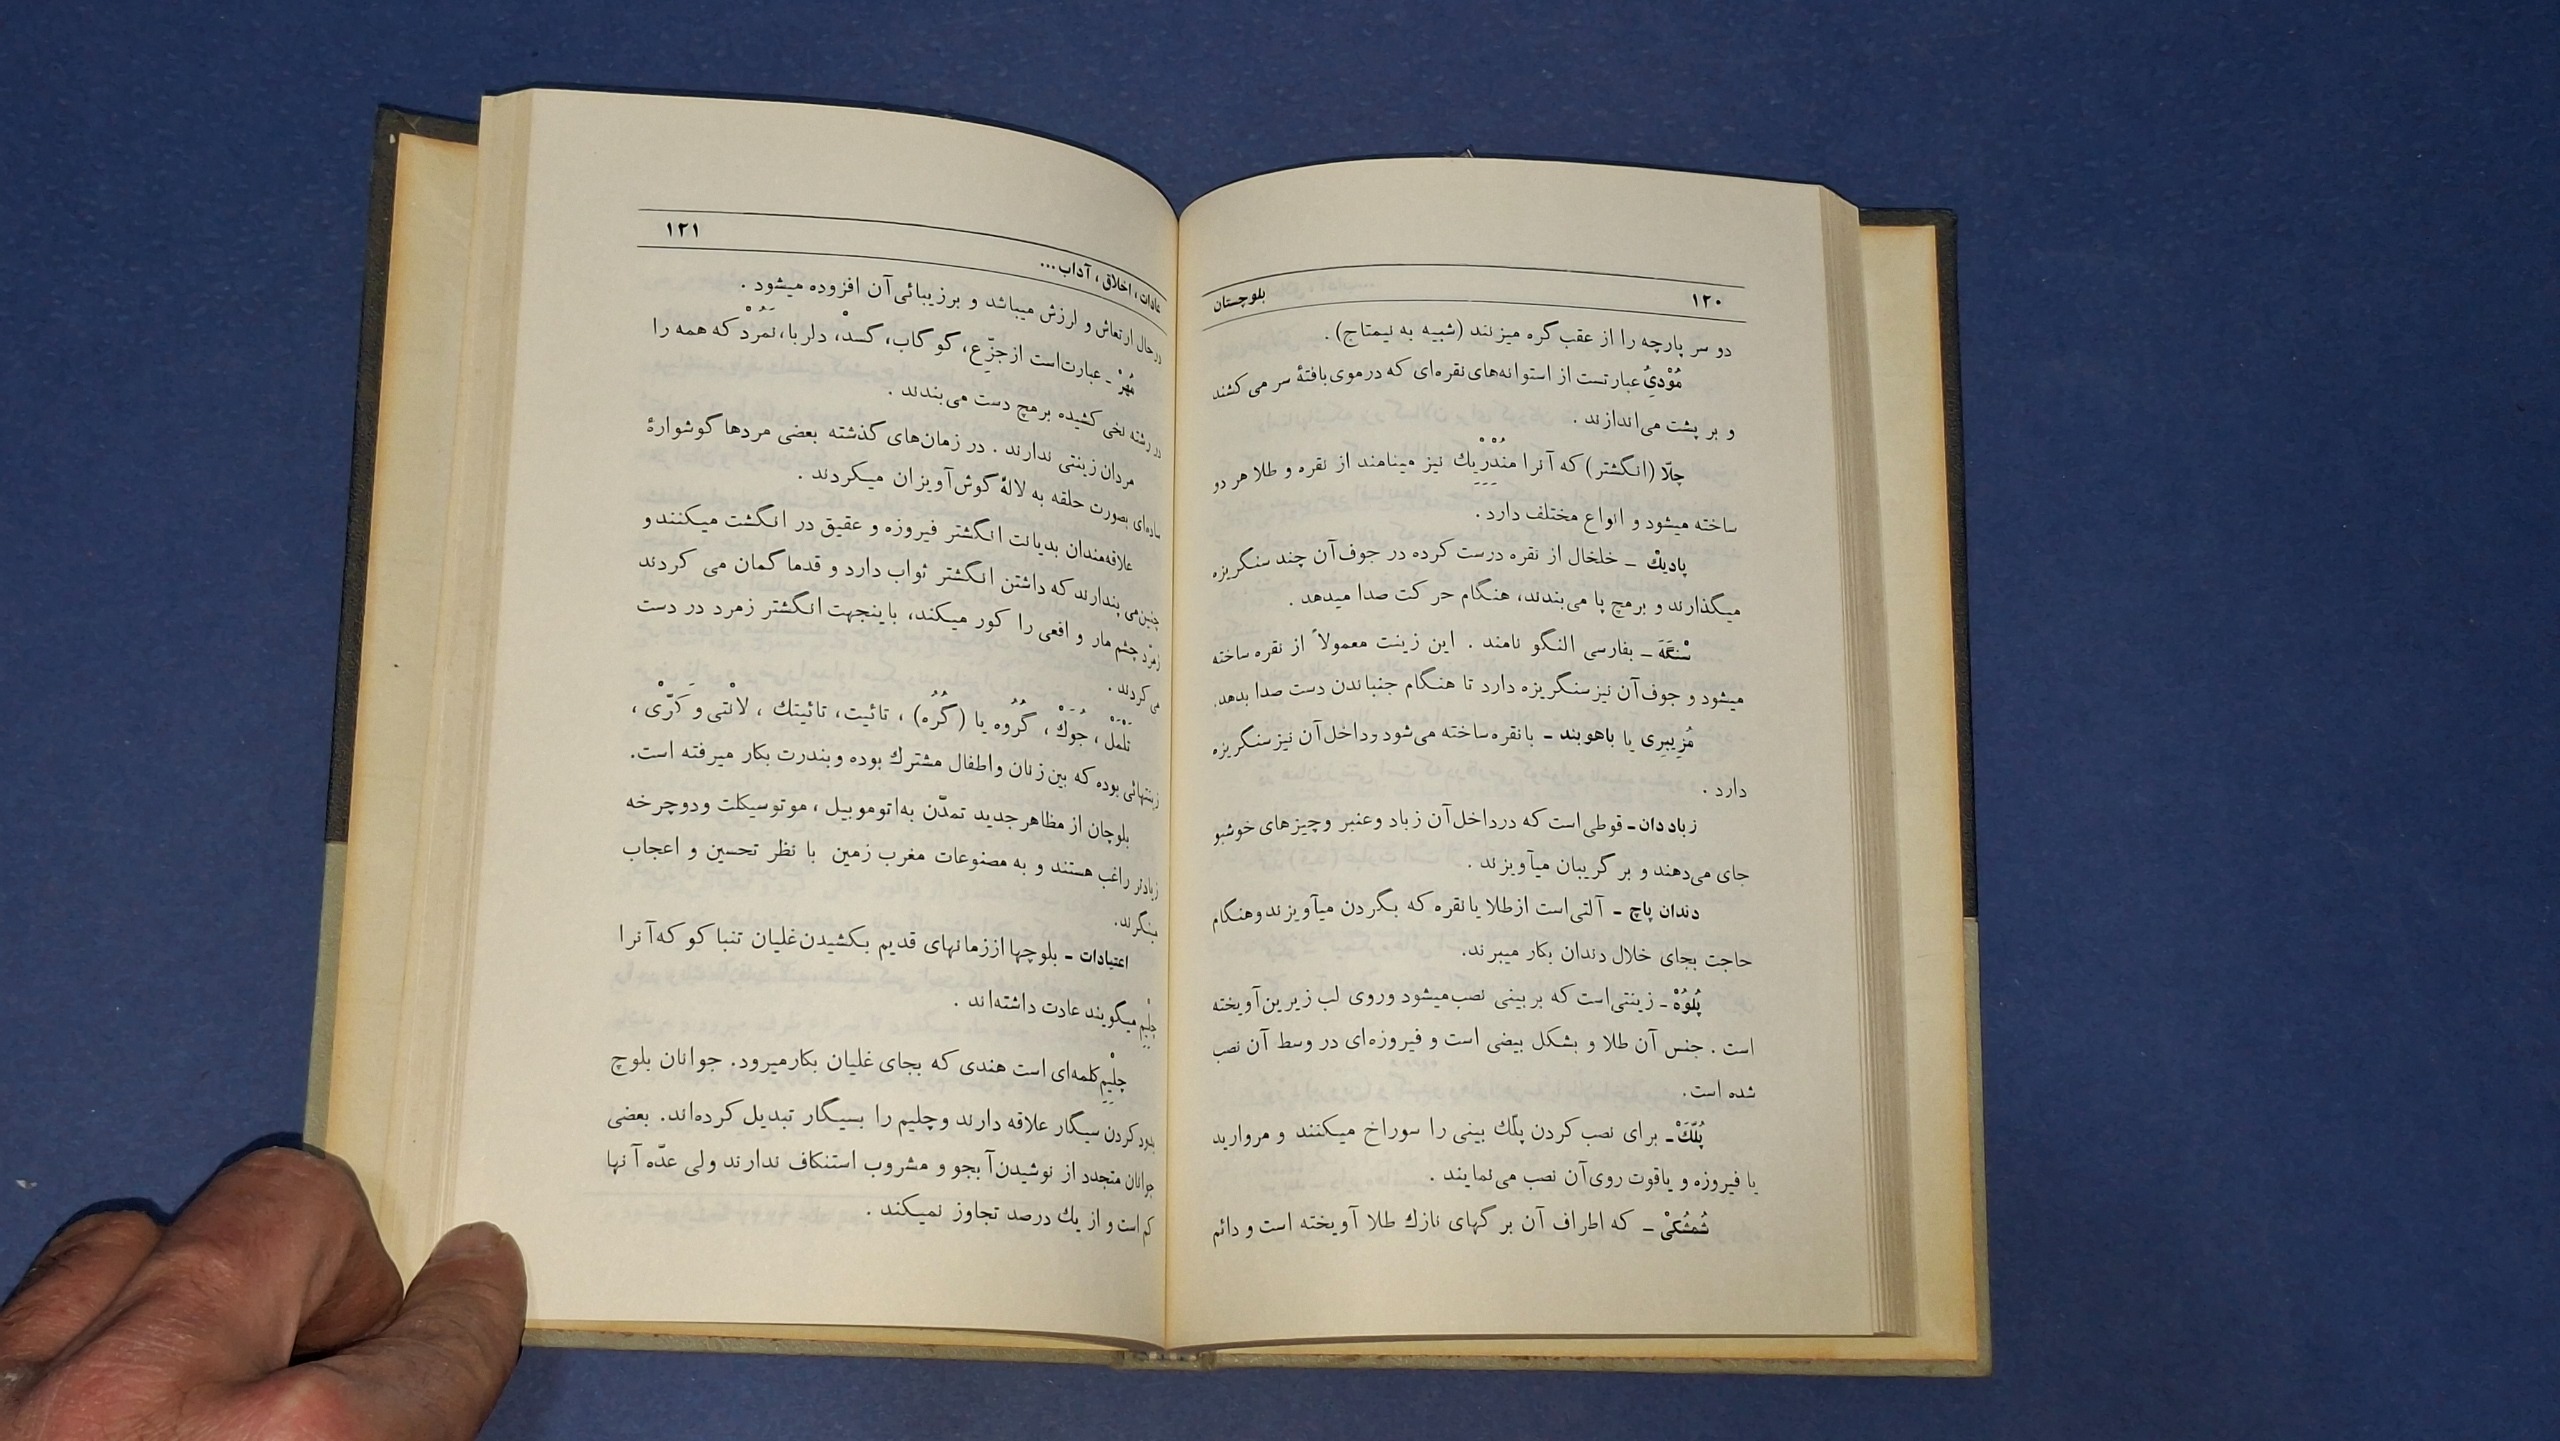 ۱۲۰ بلوچستان
دو سر پارچه را از عقب گره میزنند (شبیه به نیمتاج) .
مُوْدِیُ عبارتست از استوانه‌های نقره‌ای که درموی بافتهٔ سر می‌کشند
و بر پشت می‌اندازند .
چلّا (انگشتر) که آنرا مُنْدْرْیِك نیز مینامند از نقره و طلا هر دو
ساخته میشود و انواع مختلف دارد .
پادیكْ – خلخال از نقره درست کرده در جوف آن چند سنگریزه
میگذارند و برمچ پا می‌بندند، هنگام حرکت صدا میدهد .
سْنگَهَ – بفارسی النگو نامند . این زینت معمولاً از نقره ساخته
میشود و جوف آن نیز سنگریزه دارد تا هنگام جنباندن دست صدا بدهد.
مُزِیبِری یا باهوبند – با نقره ساخته می‌شود و داخل آن نیز سنگریزه
دارد .
زباددان – قوطی است که درداخل آن زباد وعنبر وچیزهای خوشبو
جای می‌دهند و بر گریبان میآویزند .
دندان پاچ – آلتی است ازطلا یا نقره که بگردن میآویزند وهنگام
حاجت بجای خلال دندان بکار میبرند.
پُلوُهْ – زینتی است که بر بینی نصب میشود وروی لب زیرین آویخته
است . جنس آن طلا و بشکل بیضی است و فیروزه‌ای در وسط آن نصب
شده است.
پُلّكَْ – برای نصب کردن پلّك بینی را سوراخ میکنند و مروارید
یا فیروزه و یاقوت روی آن نصب می‌نمایند .
شُمشُکیْ – که اطراف آن برگهای نازك طلا آویخته است و دائم
۱۲۱
عادات ، اخلاق ، آداب ...
درحال ارتعاش و لرزش میباشد و برزیبائی آن افزوده میشود .
مُهرْ – عبارت است از جزّعِ، کو کاب، کسدْ، دلربا، نَمُرْدْ که همه را
در رشته نخی کشیده برمچ دست می‌بندند .
مردان زینتی ندارند . در زمان‌های گذشته بعضی مردها گوشوارهٔ
ساده‌ای بصورت حلقه به لالهٔ گوش آویزان میکردند .
علاقه‌مندان بدیانت انگشتر فیروزه و عقیق در انگشت میکنند و
چنین می پندارند که داشتن انگشتر ثواب دارد و قدما گمان می کردند
زمرّد چشم مار و افعی را کور میکند، باینجهت انگشتر زمرد در دست
می کردند .
تَلْمَلْ ، جُوَكْ ، گُرُوه یا (گُرُه) ، تائیت، تائیتك ، لانْتی و کَرّیْ ،
زینتهائی بوده که بین زنان واطفال مشترك بوده و بندرت بکار میرفته است.
بلوچان از مظاهر جدید تمدّن به‌اتوموبیل ، موتوسیکلت ودوچرخه
زیادتر راغب هستند و به مصنوعات مغرب زمین با نظر تحسین و اعجاب
مینگرند.
اعتیادات – بلوچها اززمانهای قدیم بکشیدن غلیان تنباکو که آنرا
چلْیِم میگویند عادت داشته‌اند .
چلْیِم کلمه‌ای است هندی که بجای غلیان بکارمیرود. جوانان بلوچ
بدود کردن سیگار علاقه دارند وچلیم را بسیگار تبدیل کرده‌اند. بعضی
جوانان متجدد از نوشیدن آبجو و مشروب استنکاف ندارند ولی عدّه آنها
کم است و از یك درصد تجاوز نمیکند .